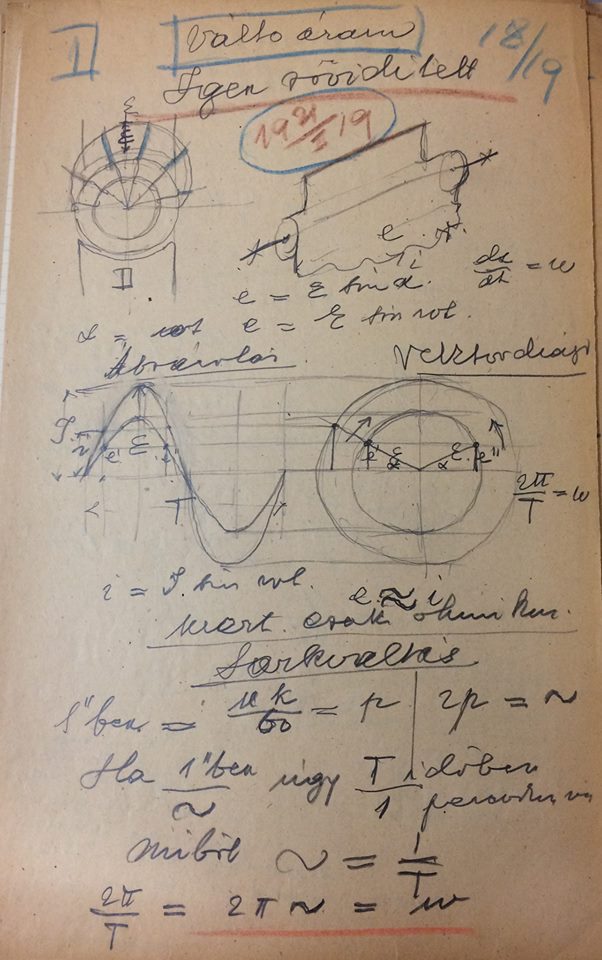 II Váltóáram 18/19
Igen rövidített
19 21/I 19
e
i
e = E sin α. dα/dt = w
α = wt e = E sin wt.
Ábrázolás Vektordiagr
J i e' E i" e' E α α E e"
T 2π/T = w
i = J sin wt.
e ≈ i
mert csak ohmikus.
Sarkváltás
1" ben = uk/60 = p 2p = ~
Ha 1" ben/~ úgy T időben/1 periodus van
miből ~ = 1/T
2π/T = 2π ~ = w